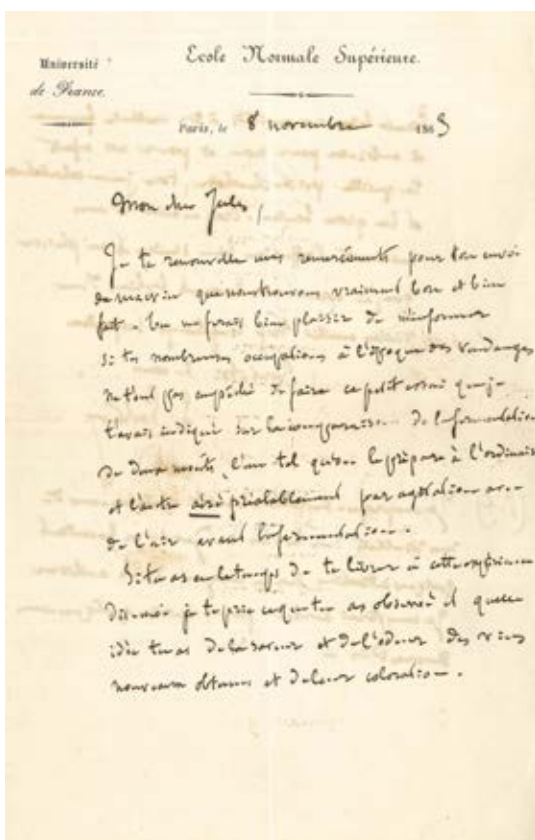 Université
de France.
Ecole Normale Supérieure.
Paris, le 8 novembre 1863
Mon cher Jules,
Je te renouvelle mes remerciements pour ton envoi
de que nous trouvons vraiment bon et bien
fait. Tu me ferais bien plaisir de m'informer
si tes nombreuses occupations à l'époque des vendanges
ne t'ont pas empêché de faire ce petit essai que je
t'avais indiqué sur la comparaison de la fermentation
de deux moûts, l'un tel qu'on le prépare à l'ordinaire
et l'autre aéré préalablement par agitation avec
de l'air avant la fermentation.
Si tu as eu le temps de te livrer à cette expérience
dis-moi je te prie ce que tu as observé et quelle
idée tu as de la saveur et de l'odeur des vins
nouveaux obtenus et de leur coloration.